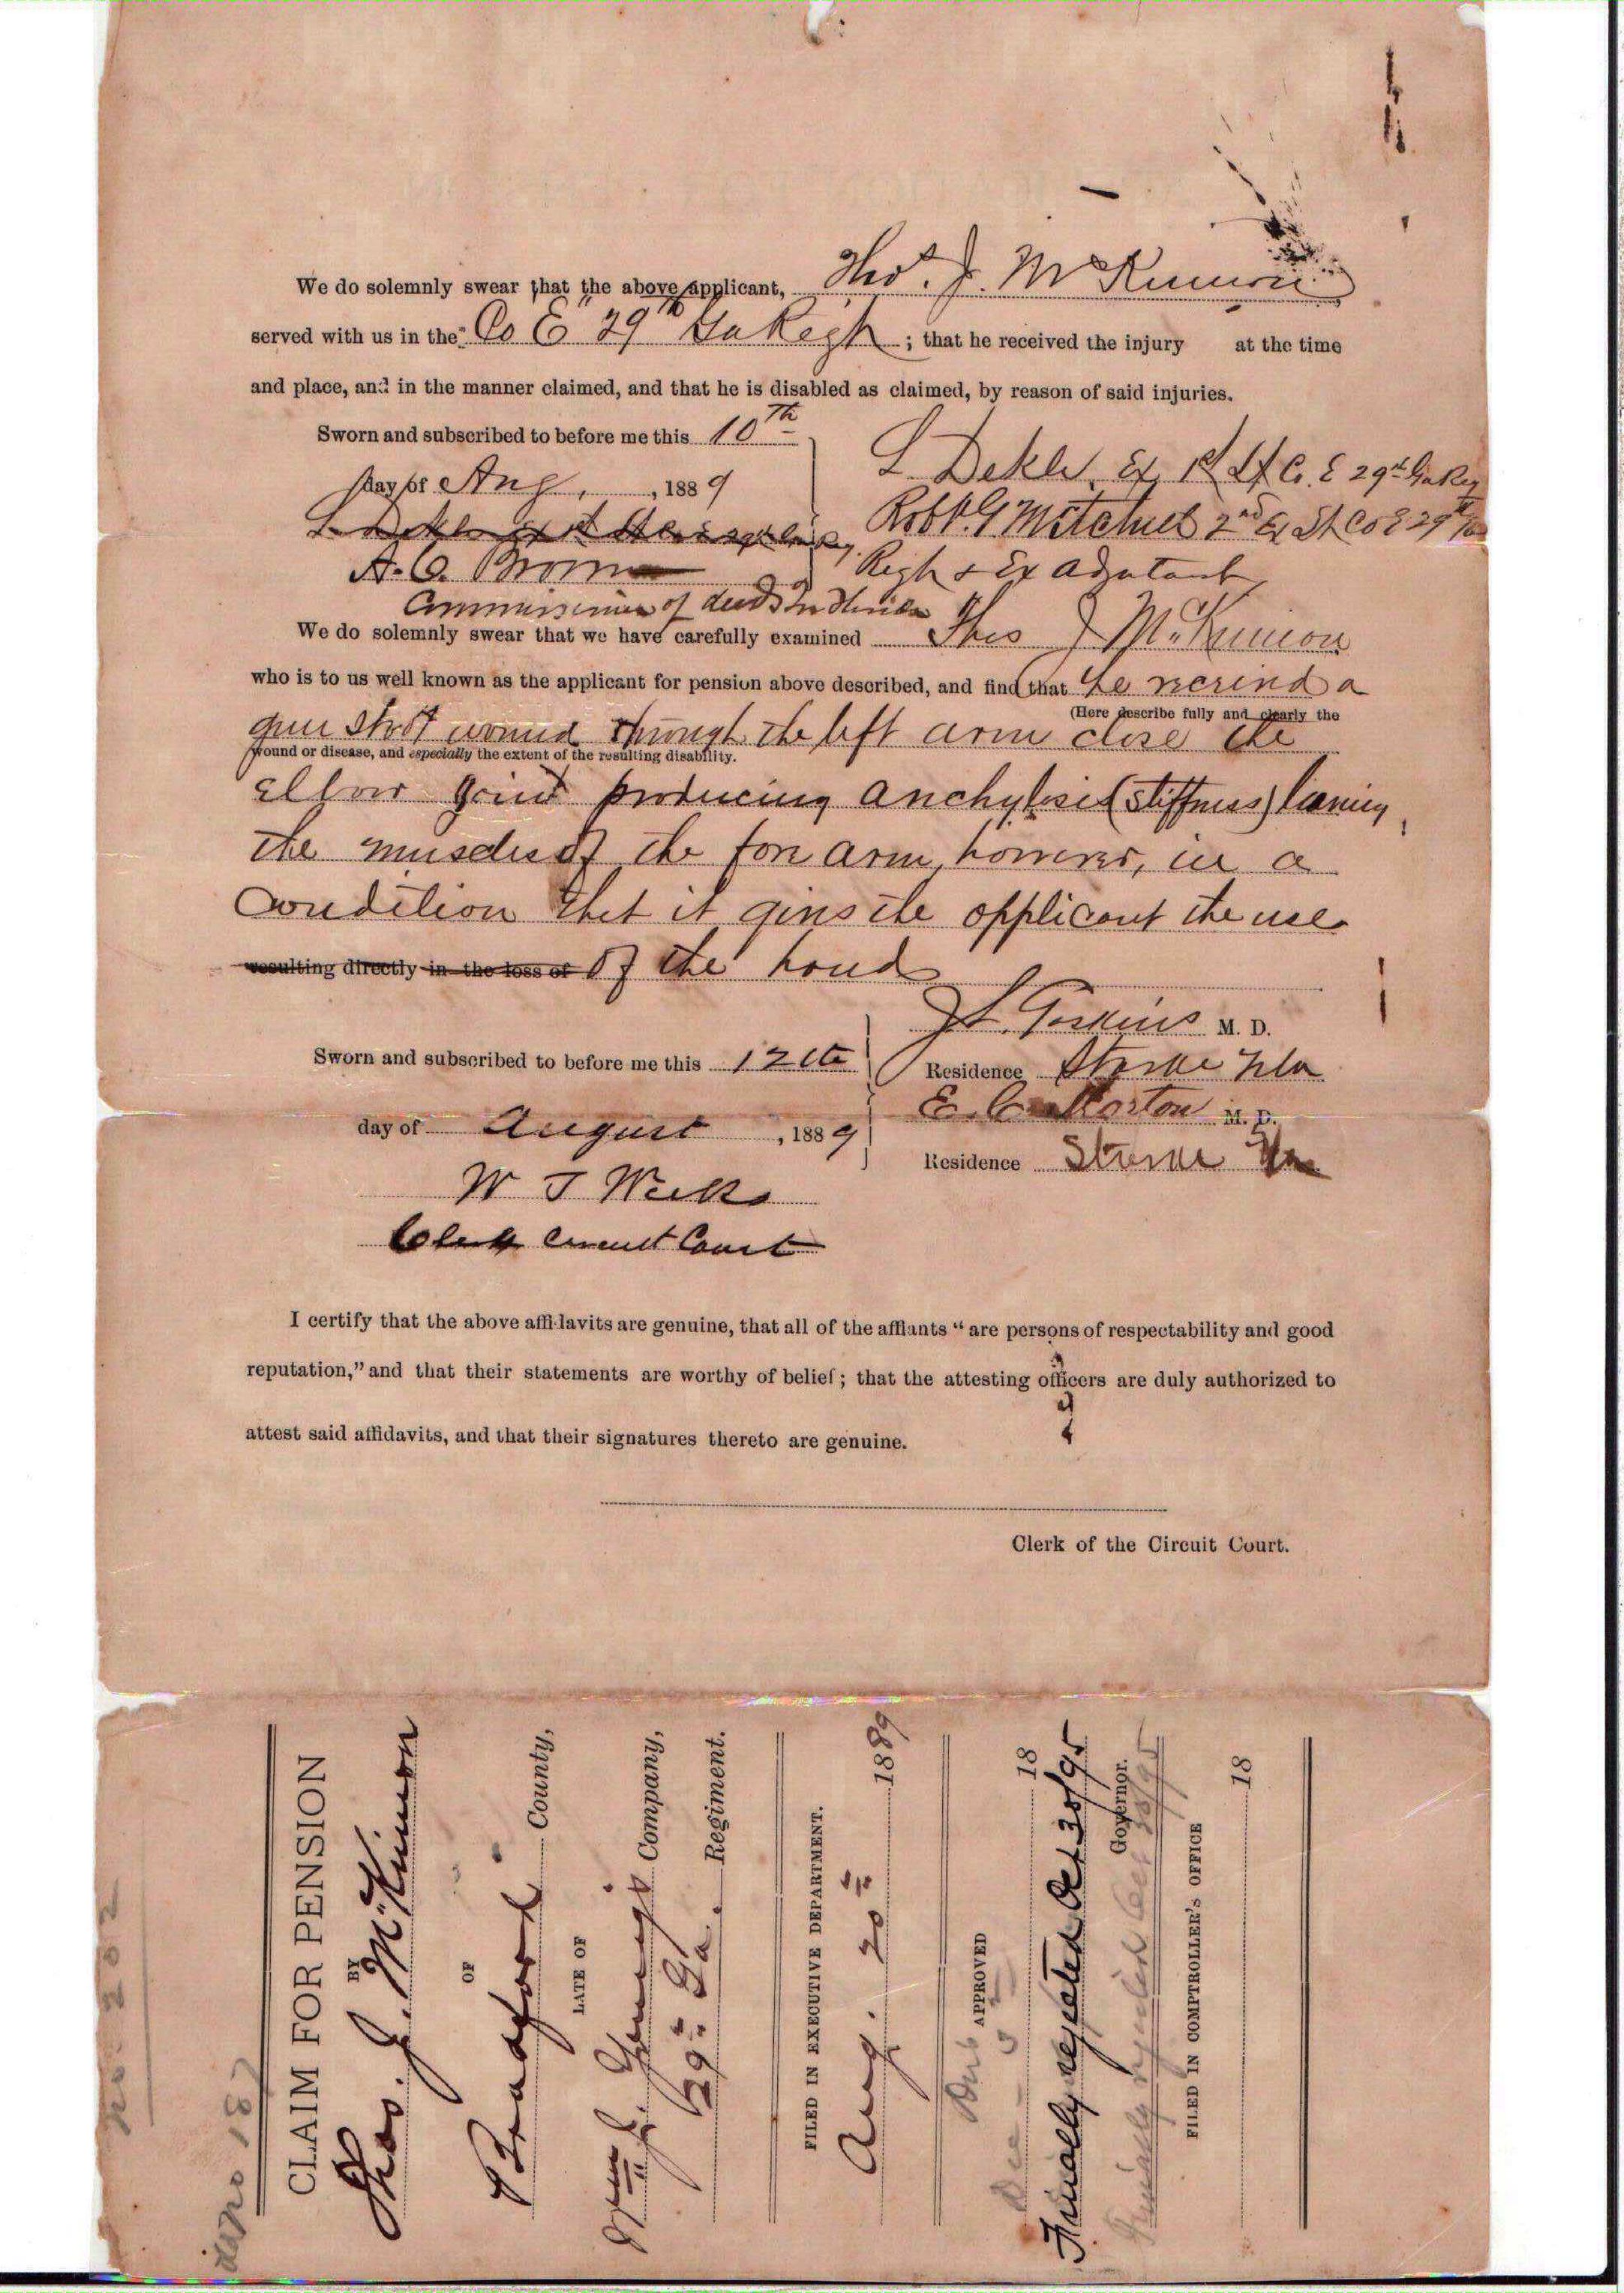 We do solemnly swear that the above applicant, Thos. J. McKinnon
served with us in the Co E 29th Ga Regt ; that he received the injury at the time
and place, and in the manner claimed, and that he is disabled as claimed, by reason of said injuries.
Sworn and subscribed to before me this 10th
day of Aug, , 1889
L Dekle, Ex 1st Lt Co. E 29th Ga Reg
Robt. G Mitchell 2nd Ex Lt Co E 29th Ga
Regt & Ex adjutant
Commissioner of deeds
We do solemnly swear that we have carefully examined Thos J McKinnon
who is to us well known as the applicant for pension above described, and find that he received a
(Here describe fully and clearly the
gun shot wound through the left arm close the
wound or disease, and especially the extent of the resulting disability.
elbow joint producing anchylosis (stiffness) leaving
the muscles of the fore arm, however, in a
condition that it gives the applicant the use
resulting directly in the loss of of the hand
M. D.
Sworn and subscribed to before me this 12th
Residence Starke Fla
M. D.
day of August , 1889
Residence Starke Fla
W T Weeks
Clerk Circuit Court
I certify that the above affidavits are genuine, that all of the affiants “are persons of respectability and good
reputation,” and that their statements are worthy of belief; that the attesting officers are duly authorized to
attest said affidavits, and that their signatures thereto are genuine.
Clerk of the Circuit Court.
No. 202
187
CLAIM FOR PENSION
BY
Thos. J. McKinnon
OF
Bradford County,
LATE OF
Company,
29th Ga. Regiment.
FILED IN EXECUTIVE DEPARTMENT.
Aug. 20th 1889
APPROVED
18
Finally rejected Oct 30/95
Governor.
Finally rejected Oct 30/95
FILED IN COMPTROLLER'S OFFICE
18